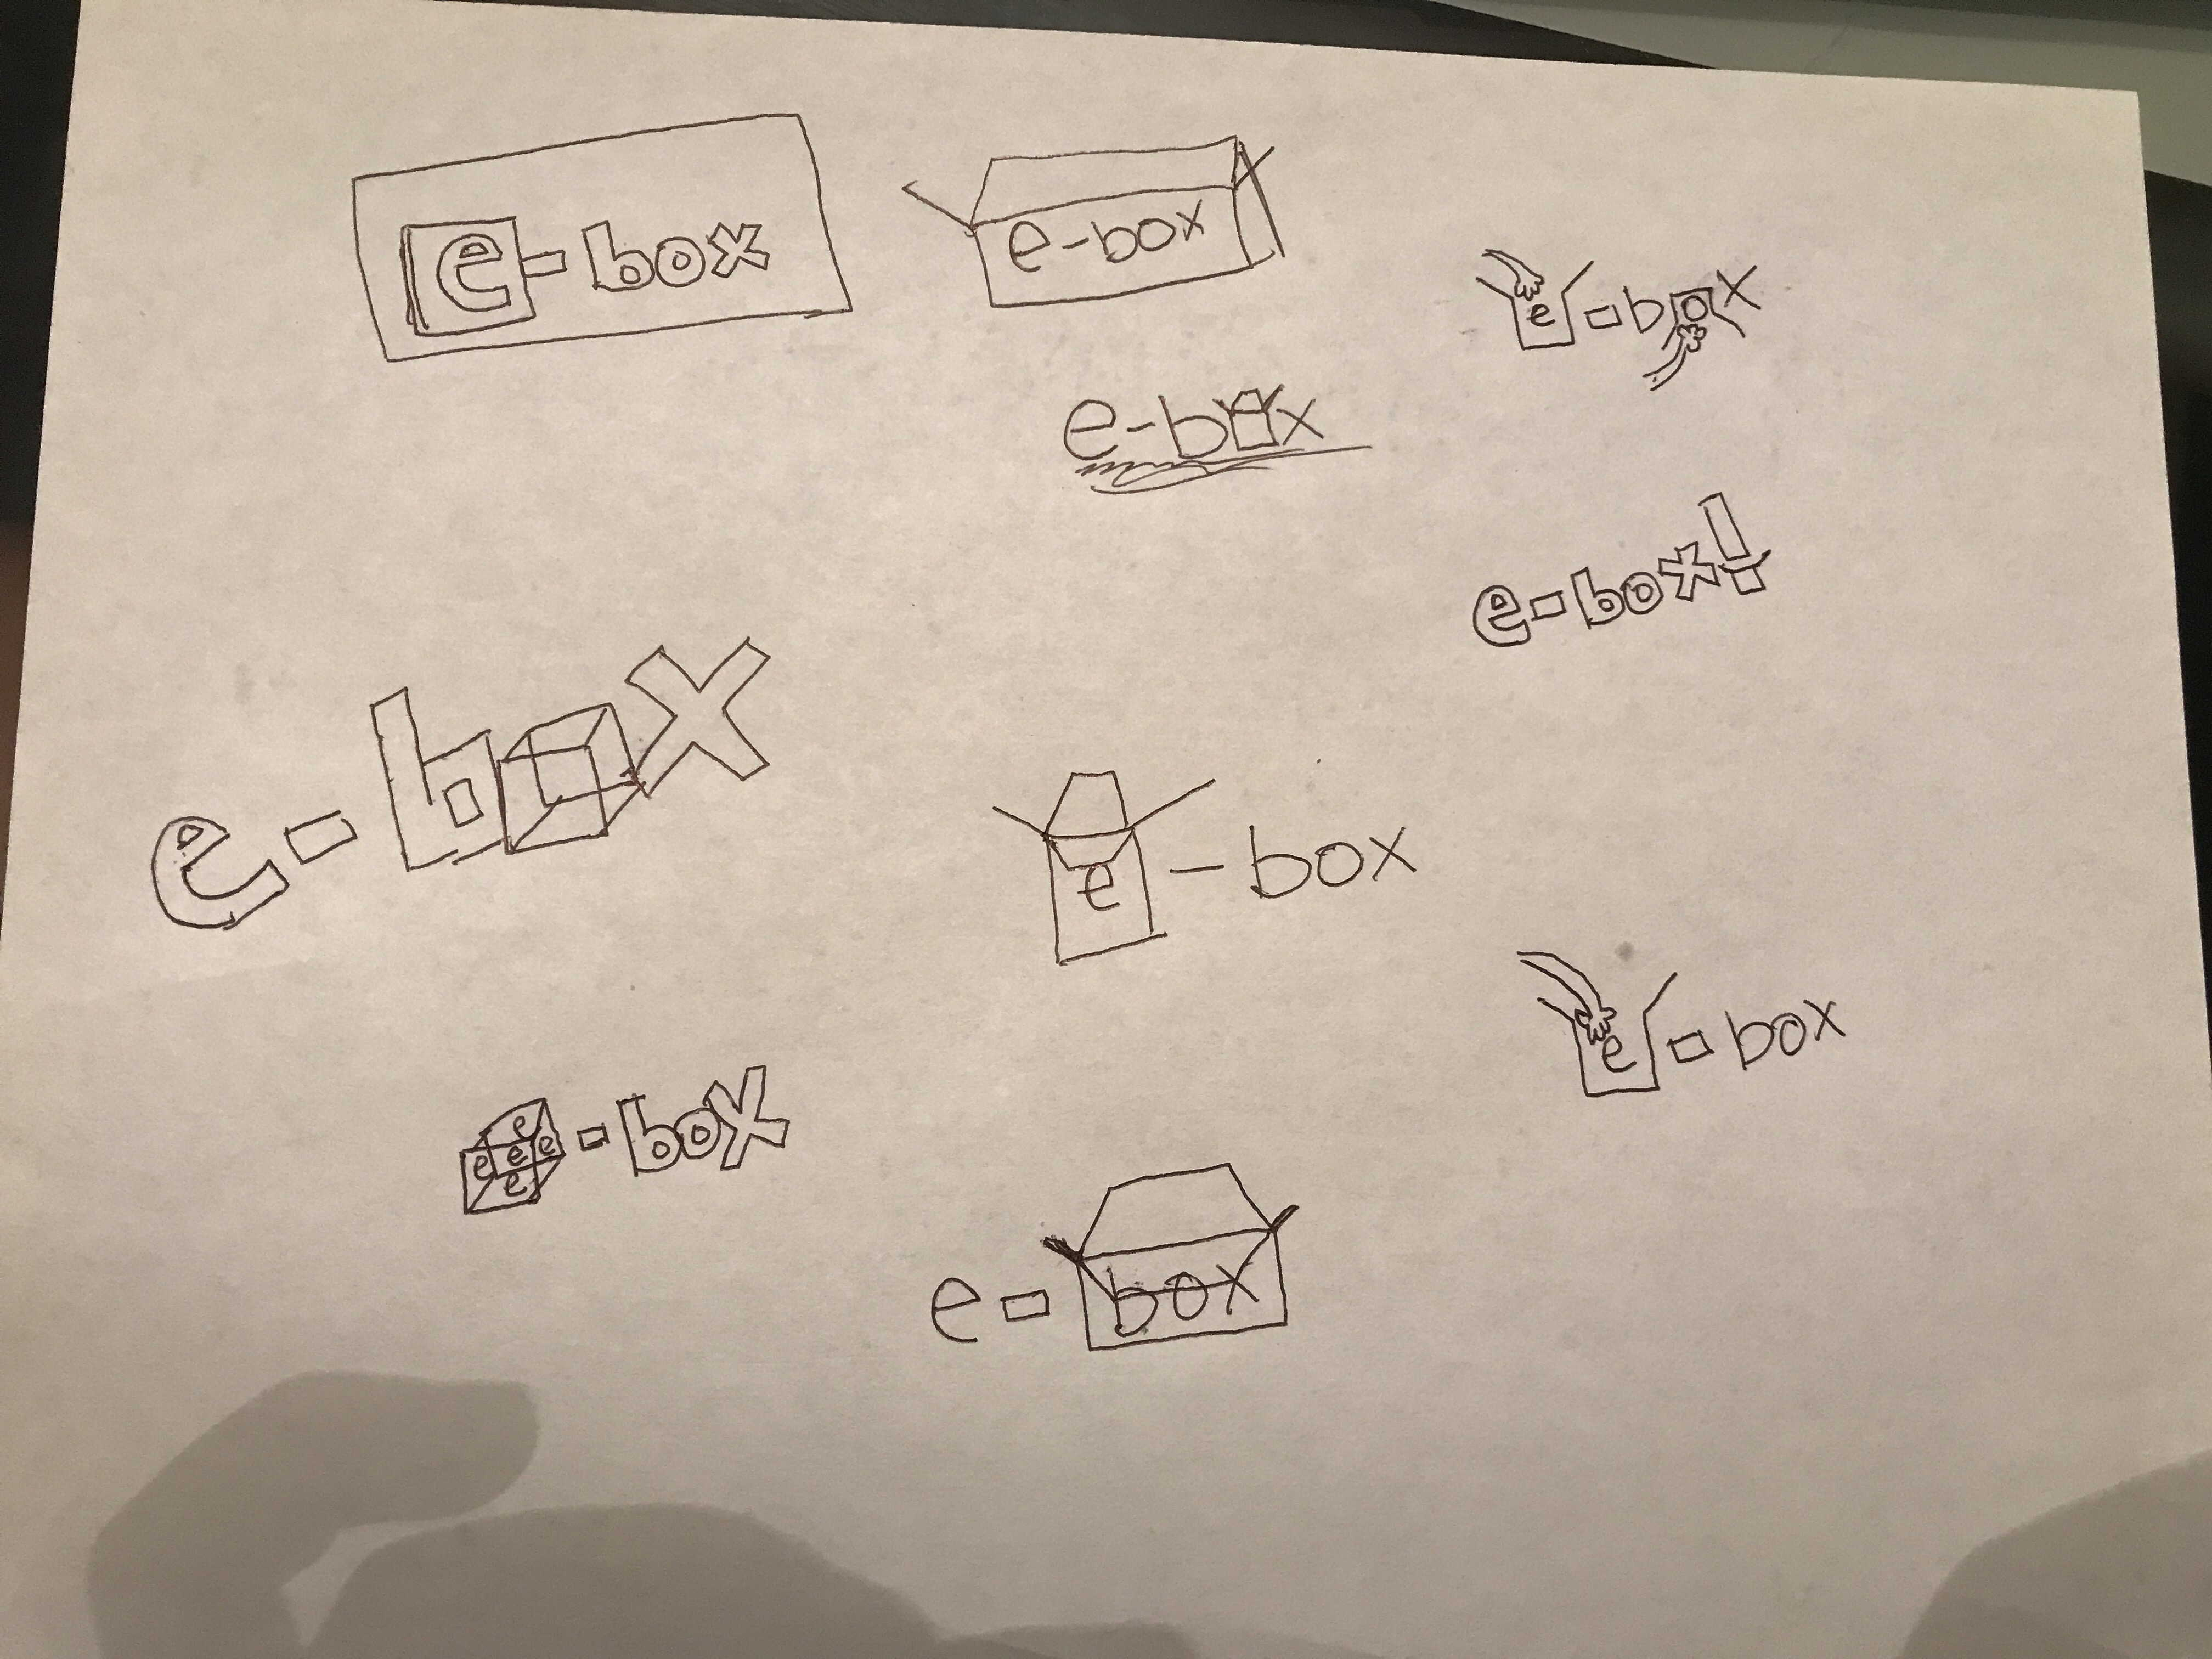 e-box
e-box
e-box
e-box
e-box
e-box
e-box
e-box
e-box
e-box